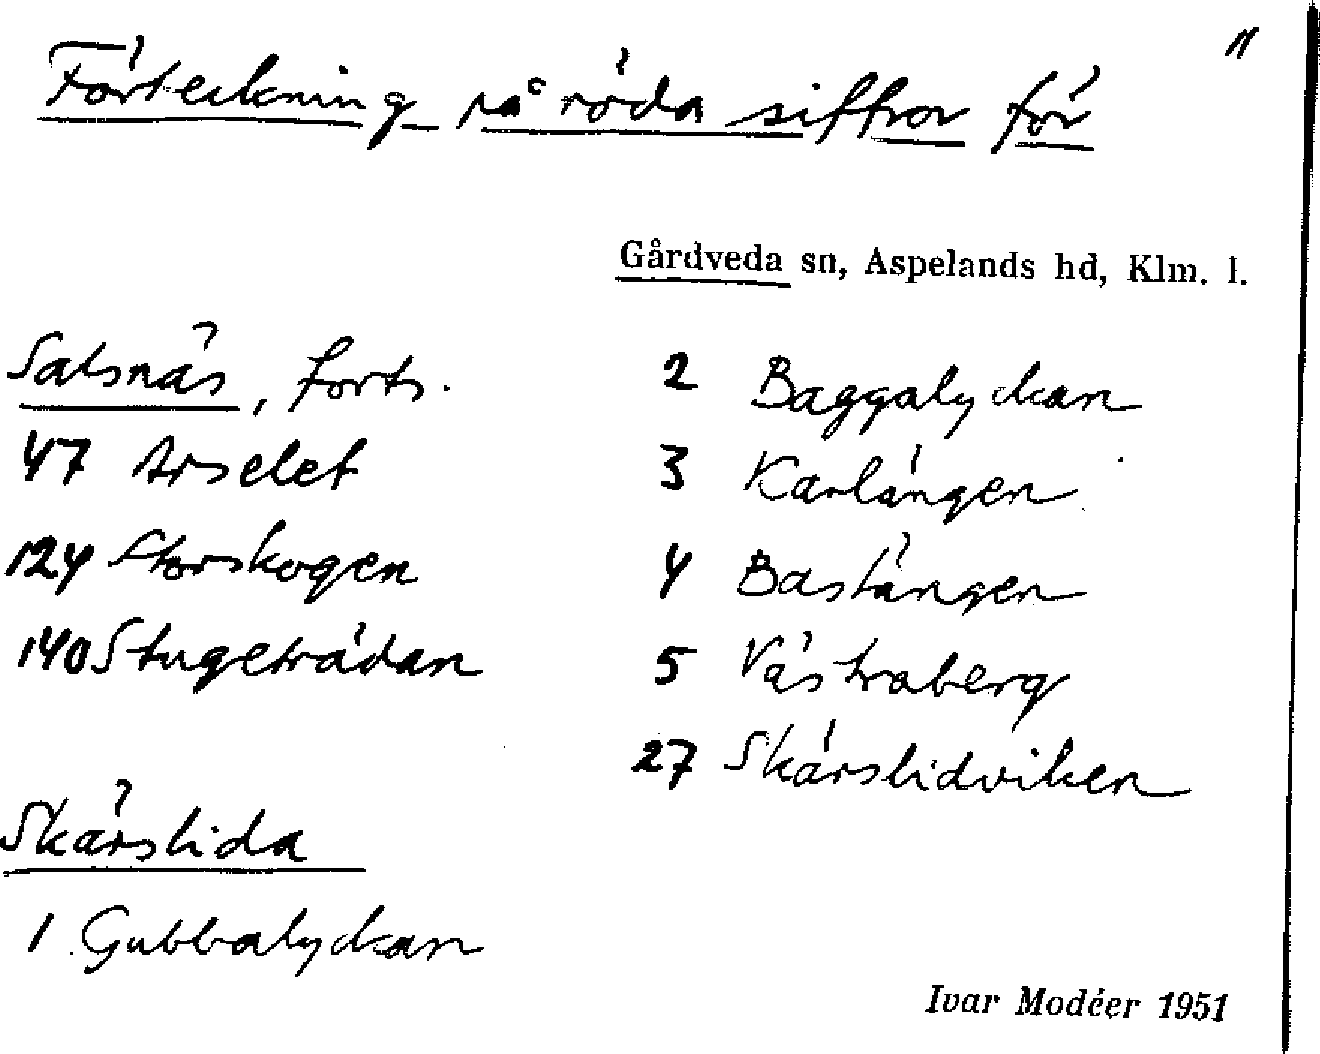 11
Förteckning på röda siffror för
Gårdveda sn, Aspelands hd, Klm. l.
Salsnäs, forts.
47 Arselet
124 Storskogen
140 Stugeträdan
Skärslida
1 Gubbalyckan
2 Baggalyckan
3 Karlängen
4 Bastängen
5 Västraberg
27 Skärslidviken
Ivar Modéer 1951